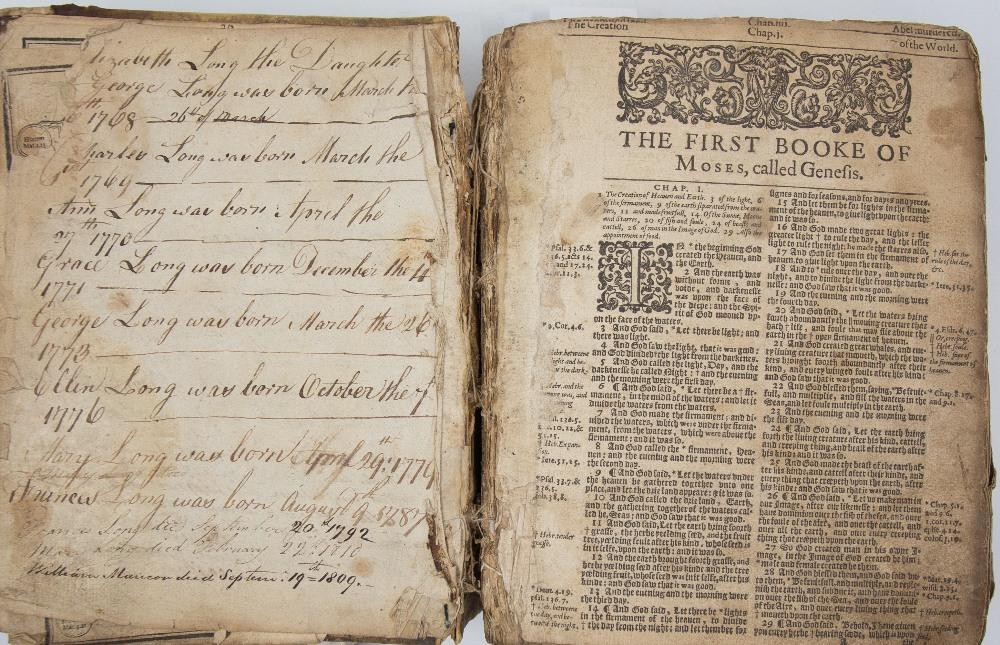 Elizabeth Long the Daughter
George Long was born March
1768 — 26th of March
Charles Long was born March the
1769
Ann Long was born April the
27th 1770
Grace Long was born December the 4
1771
George Long was born March the 26
1773
Ellin Long was born October the 7
1776
Mary Long was born April 29th 1779
Frances Long was born August 1787
Long died September 20th 1792
died February 22 1810
William Muncon died Septem: 19th = 1809.
The Creation
Chap.j.
Abel murdered
of the World.
THE FIRST BOOKE OF
MOSES, called Geneſis.
CHAP. I.
1 The Creation of Heaven and Earth. 3 of the light, 6
of the firmament, 9 of the earth ſeparated from the wa-
ters, 11 and made fruitfull, 14 Of the Sunne, Moone
and Starres, 20 of fiſh and foule, 24 of beaſts and
cattell, 26 of man in the Image of God. 29 Alſo the
appointment of food.
IN * the beginning God
created the Heaven, and
the Earth.
2 And the earth was
without forme, and
voide, and darkeneſſe
was upon the face of
the deepe: and the Spi-
rit of God mooved up-
on the face of the waters.
3 And God ſaid, * Let there be light: and
there was light.
4 And God ſaw the light, that it was good:
and God divided † the light from the darkenes.
5 And God called the light, Day, and the
darkeneſſe he called Night: † and the evening
and the morning were the firſt day.
6 ¶ And God ſaid, * Let there be a † fir-
mament, in the midſt of the waters: and let it
divide the waters from the waters.
7 And God made the firmament; and di-
vided the waters, which were under the firma-
ment, from the waters, which were above the
firmament: and it was ſo.
8 And God called the * firmament, Hea-
ven: and the evening and the morning were
the ſecond day.
9 ¶ And God ſaid, * Let the waters under
the heaven be gathered together unto one
place, and let the drie land appeare: and it was ſo.
10 And God called the drie land, Earth,
and the gathering together of the waters cal-
led he, Seas: and God ſaw that it was good.
11 And God ſaid, Let the Earth bring foorth
† graſſe, the herbe yeelding ſeed, and the fruit
tree, yeelding fruit after his kind, whoſe ſeed is
in it ſelfe, upon the earth: and it was ſo.
12 And the earth brought foorth graſſe, and
herbe yeelding ſeed after his kind, and the tree
yeelding fruit, whoſe ſeed was in it ſelfe, after his
kind: and God ſaw that it was good.
13 And the evening and the morning were
the third day.
14 ¶ And God ſaid, Let there be * lights
in the firmament of the heaven, to divide
† the day from the night: and let them be for
ſignes and for ſeaſons, and for dayes and yeres.
15 And let them be for lights in the firma-
ment of the heaven, to give light upon the earth:
and it was ſo.
16 And God made two great lights: the
greater light † to rule the day, and the leſſer
light to rule the night: he made the ſtarres alſo.
17 And God ſet them in the firmament of
heaven, to give light upon the earth:
18 And to * rule over the day, and over the
night, and to divide the light from the darke-
neſſe: and God ſaw that it was good.
19 And the evening and the morning were
the fourth day.
20 And God ſaid, * Let the waters bring
foorth abundantly the moving creature that
hath † life, and foule that may flie above the
earth in the † open firmament of heaven.
21 And God created great whales, and eve-
ry living creature that mooveth, which the wa-
ters brought foorth abundantly after their
kind, and every winged foule after his kind:
and God ſaw that it was good.
22 And God bleſſed them, ſaying, * Be fruit-
full, and multiplie, and fill the waters in the
Seas, and let foule multiply in the earth.
23 And the evening and the morning were
the fift day.
24 ¶ And God ſaid, Let the earth bring
forth the living creature after his kind, cattell,
and creeping thing, and beaſt of the earth after
his kind: and it was ſo.
25 And God made the beaſt of the earth af-
ter his kind, and cattell after their kind, and
every thing that creepeth upon the earth, after
his kind: and God ſaw that it was good.
26 ¶ And God ſaid, * Let us make man in
our Image, after our likeneſſe: and let them
have dominion over the fiſh of the ſea, and over
the foule of the aire, and over the cattell, and
over all the earth, and over every creeping
thing that creepeth upon the earth.
27 So God created man in his owne I-
mage, in the Image of God created he him;
* male and female created he them.
28 And God bleſſed them, and God ſaid un-
to them, * Be fruitfull, and multiply, and repleniſh
the earth, and ſubdue it, and have dominion
over the fiſh of the Sea, and over the foule
of the Aire, and over every living thing that
† mooveth upon the earth.
29 ¶ And God ſaid, Behold, I have given
you every herbe † bearing ſeede, which is upon